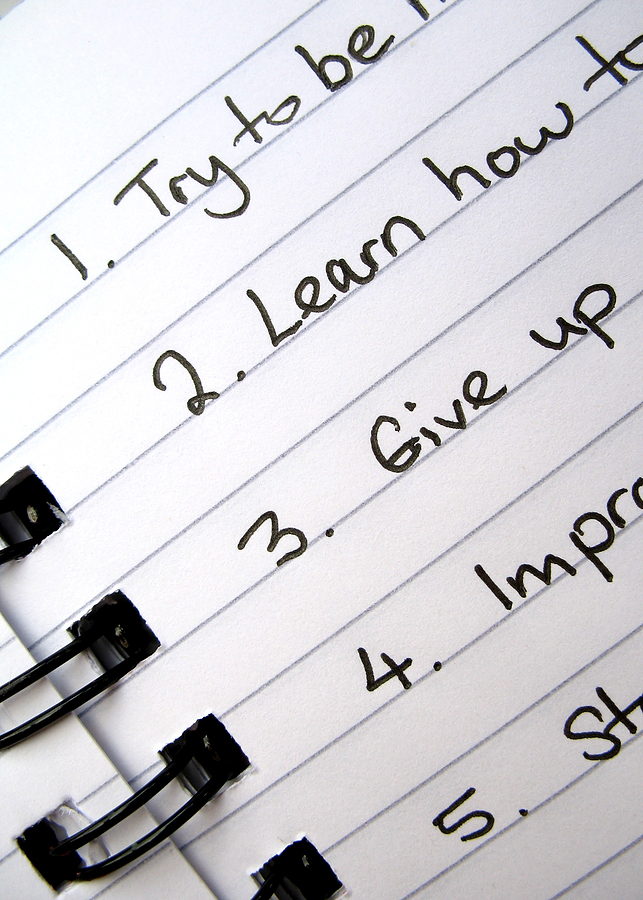 1. Try to be
2. Learn how to
3. Give up
4. Impro
5. St